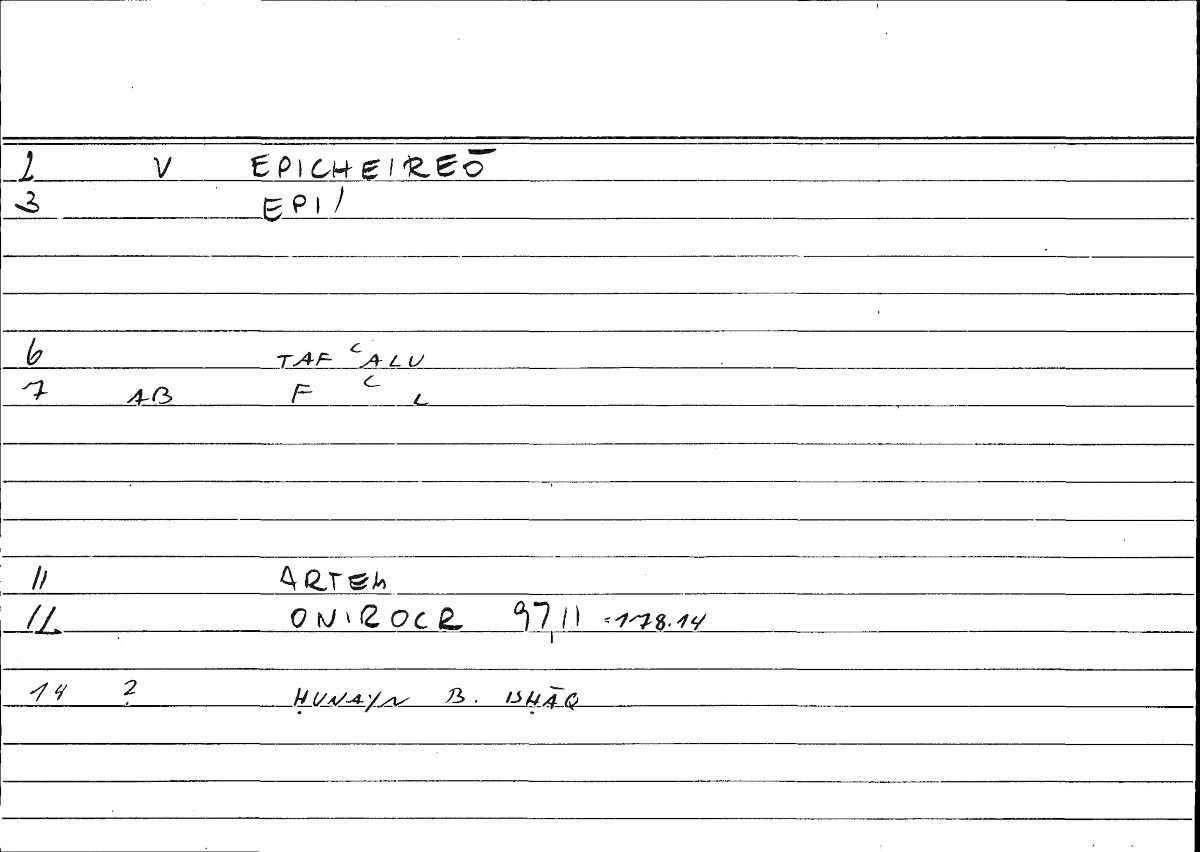 2 V EPICHEIREŌ
3 EPI/
6 TAF ʿALU
7 AB F ʿ L
11 ARTEM
12 ONIROCR 97,11 =178.14
14 ? ḤUNAYN B. ISḤĀQ